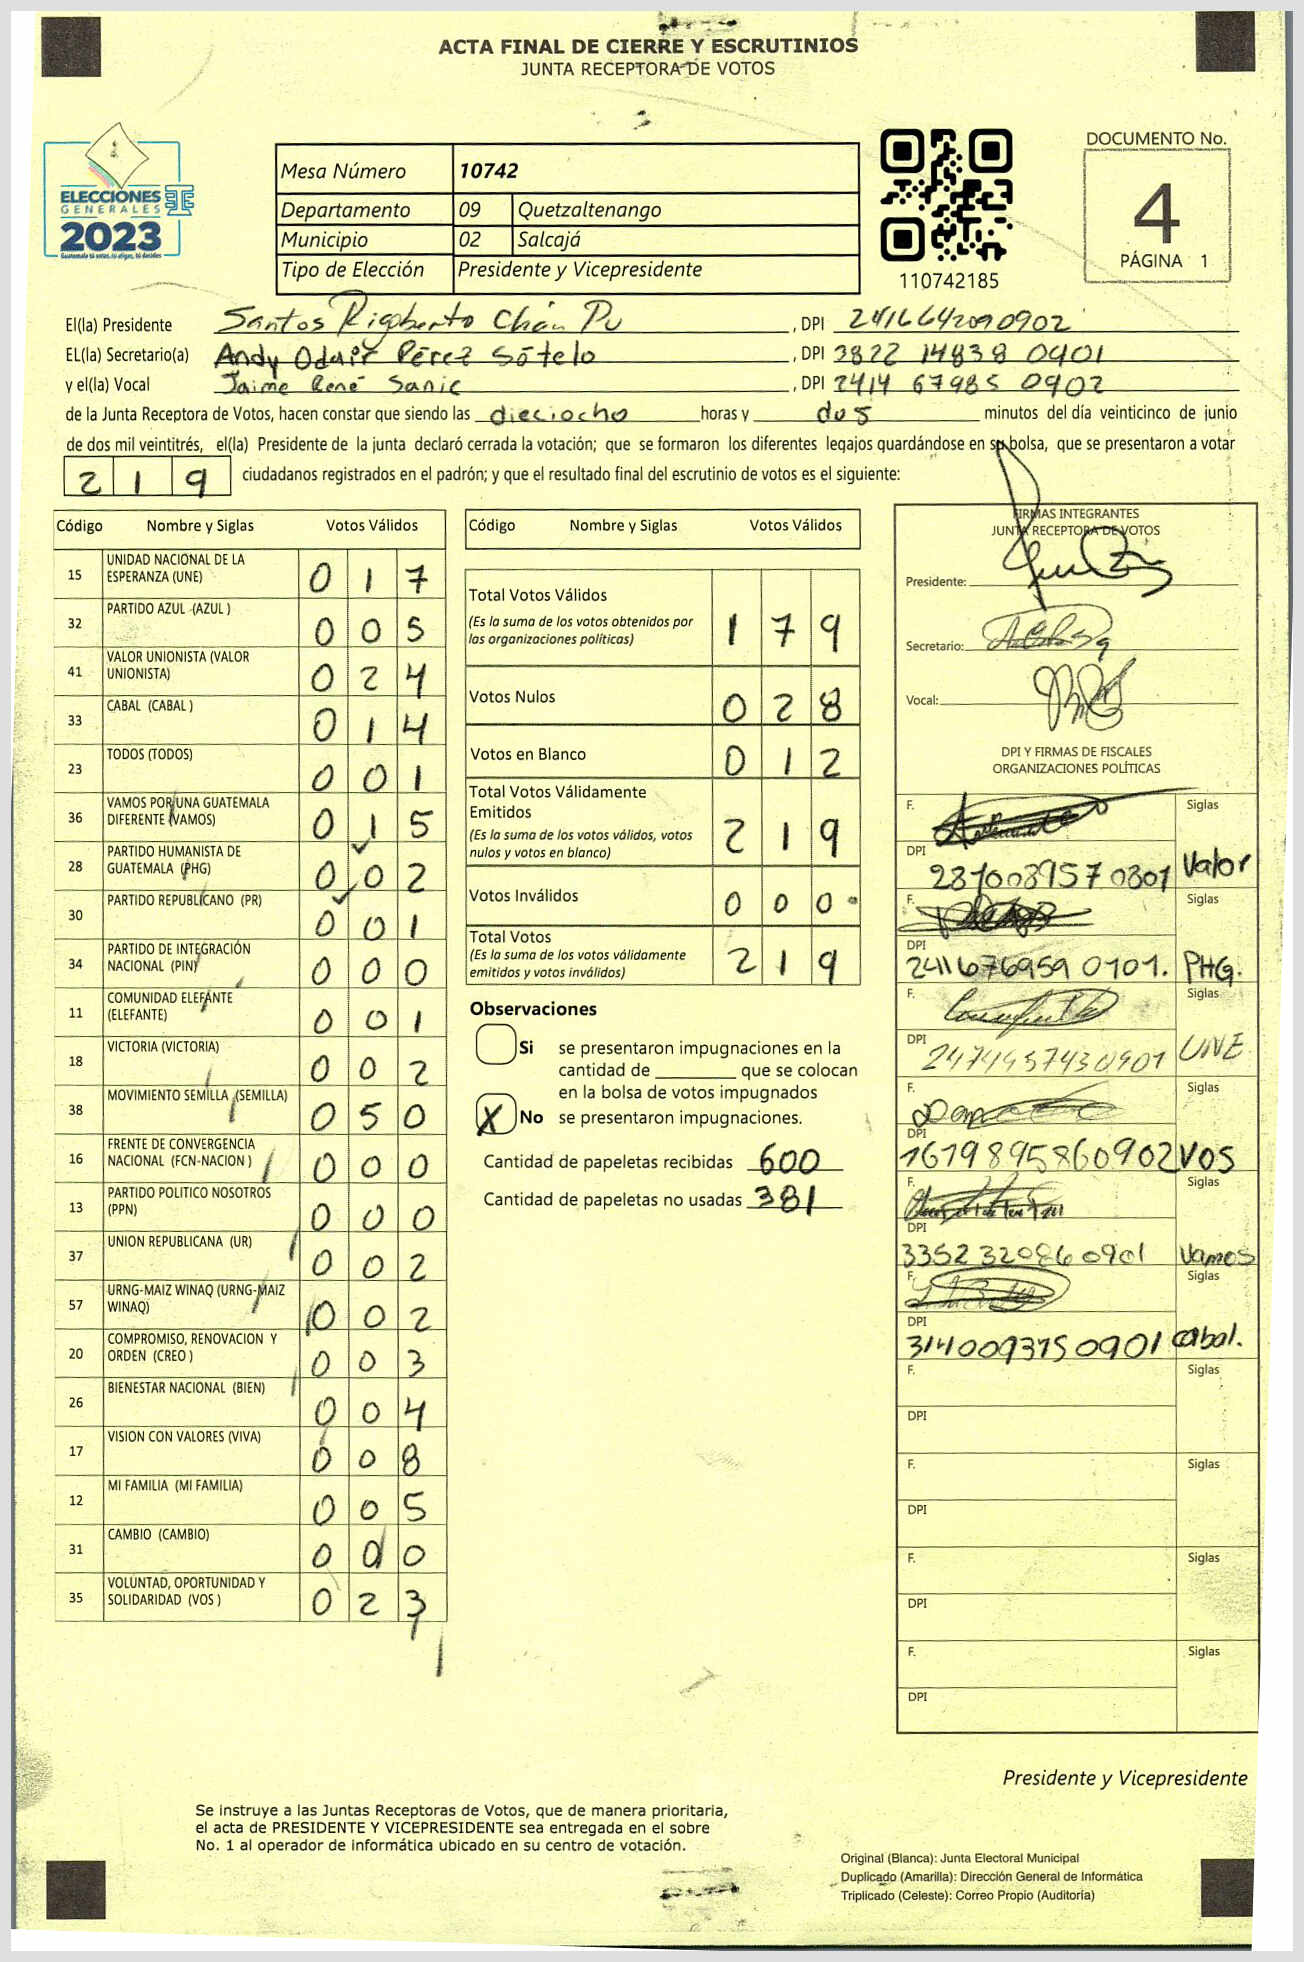 ACTA FINAL DE CIERRE Y ESCRUTINIOS
JUNTA RECEPTORA DE VOTOS
ELECCIONES
GENERALES
2023
Guatemala tú votas, tú eliges, tú decides
Mesa Número 10742
Departamento 09 Quetzaltenango
Municipio 02 Salcajá
Tipo de Elección Presidente y Vicepresidente
110742185
DOCUMENTO No.
4
PÁGINA 1
El(la) Presidente Santos Rigoberto Chán Pu , DPI 2416642090902
EL(la) Secretario(a) Andy Odair Pérez Sótelo , DPI 3822 14838 0901
y el(la) Vocal Jaime René Sanic , DPI 2414 67985 0902
de la Junta Receptora de Votos, hacen constar que siendo las dieciocho horas y dos minutos del día veinticinco de junio
de dos mil veintitrés, el(la) Presidente de la junta declaró cerrada la votación; que se formaron los diferentes legajos guardándose en su bolsa, que se presentaron a votar
219 ciudadanos registrados en el padrón; y que el resultado final del escrutinio de votos es el siguiente:
Código Nombre y Siglas Votos Válidos
15 UNIDAD NACIONAL DE LA ESPERANZA (UNE) 017
32 PARTIDO AZUL (AZUL ) 005
41 VALOR UNIONISTA (VALOR UNIONISTA) 024
33 CABAL (CABAL ) 014
23 TODOS (TODOS) 001
36 VAMOS POR UNA GUATEMALA DIFERENTE (VAMOS) 015
28 PARTIDO HUMANISTA DE GUATEMALA (PHG) 002
30 PARTIDO REPUBLICANO (PR) 001
34 PARTIDO DE INTEGRACIÓN NACIONAL (PIN) 000
11 COMUNIDAD ELEFANTE (ELEFANTE) 001
18 VICTORIA (VICTORIA) 002
38 MOVIMIENTO SEMILLA (SEMILLA) 050
16 FRENTE DE CONVERGENCIA NACIONAL (FCN-NACION ) 000
13 PARTIDO POLITICO NOSOTROS (PPN) 000
37 UNION REPUBLICANA (UR) 002
57 URNG-MAIZ WINAQ (URNG-MAIZ WINAQ) 002
20 COMPROMISO, RENOVACION Y ORDEN (CREO ) 003
26 BIENESTAR NACIONAL (BIEN) 004
17 VISION CON VALORES (VIVA) 008
12 MI FAMILIA (MI FAMILIA) 005
31 CAMBIO (CAMBIO) 000
35 VOLUNTAD, OPORTUNIDAD Y SOLIDARIDAD (VOS ) 023
Código Nombre y Siglas Votos Válidos
Total Votos Válidos
(Es la suma de los votos obtenidos por
las organizaciones políticas) 179
Votos Nulos 028
Votos en Blanco 012
Total Votos Válidamente
Emitidos
(Es la suma de los votos válidos, votos
nulos y votos en blanco) 219
Votos Inválidos 000
Total Votos
(Es la suma de los votos válidamente
emitidos y votos inválidos) 219
Observaciones
Si se presentaron impugnaciones en la
cantidad de ________ que se colocan
en la bolsa de votos impugnados
X No se presentaron impugnaciones.
Cantidad de papeletas recibidas 600
Cantidad de papeletas no usadas 381
FIRMAS INTEGRANTES
JUNTA RECEPTORA DE VOTOS
Presidente:
Secretario:
Vocal:
DPI Y FIRMAS DE FISCALES
ORGANIZACIONES POLÍTICAS
F. Siglas
DPI Valor
F. Siglas
DPI 2411676959 0101. PHG.
F. Siglas
DPI 2474957430901 UNE
F. Siglas
DPI 1679895860902 VOS
F. Siglas
DPI 3352320860901 Vamos
F. Siglas
DPI 3140093750901 Cabal.
F. Siglas
DPI
F. Siglas
DPI
F. Siglas
DPI
F. Siglas
DPI
Presidente y Vicepresidente
Se instruye a las Juntas Receptoras de Votos, que de manera prioritaria,
el acta de PRESIDENTE Y VICEPRESIDENTE sea entregada en el sobre
No. 1 al operador de informática ubicado en su centro de votación.
Original (Blanca): Junta Electoral Municipal
Duplicado (Amarilla): Dirección General de Informática
Triplicado (Celeste): Correo Propio (Auditoría)